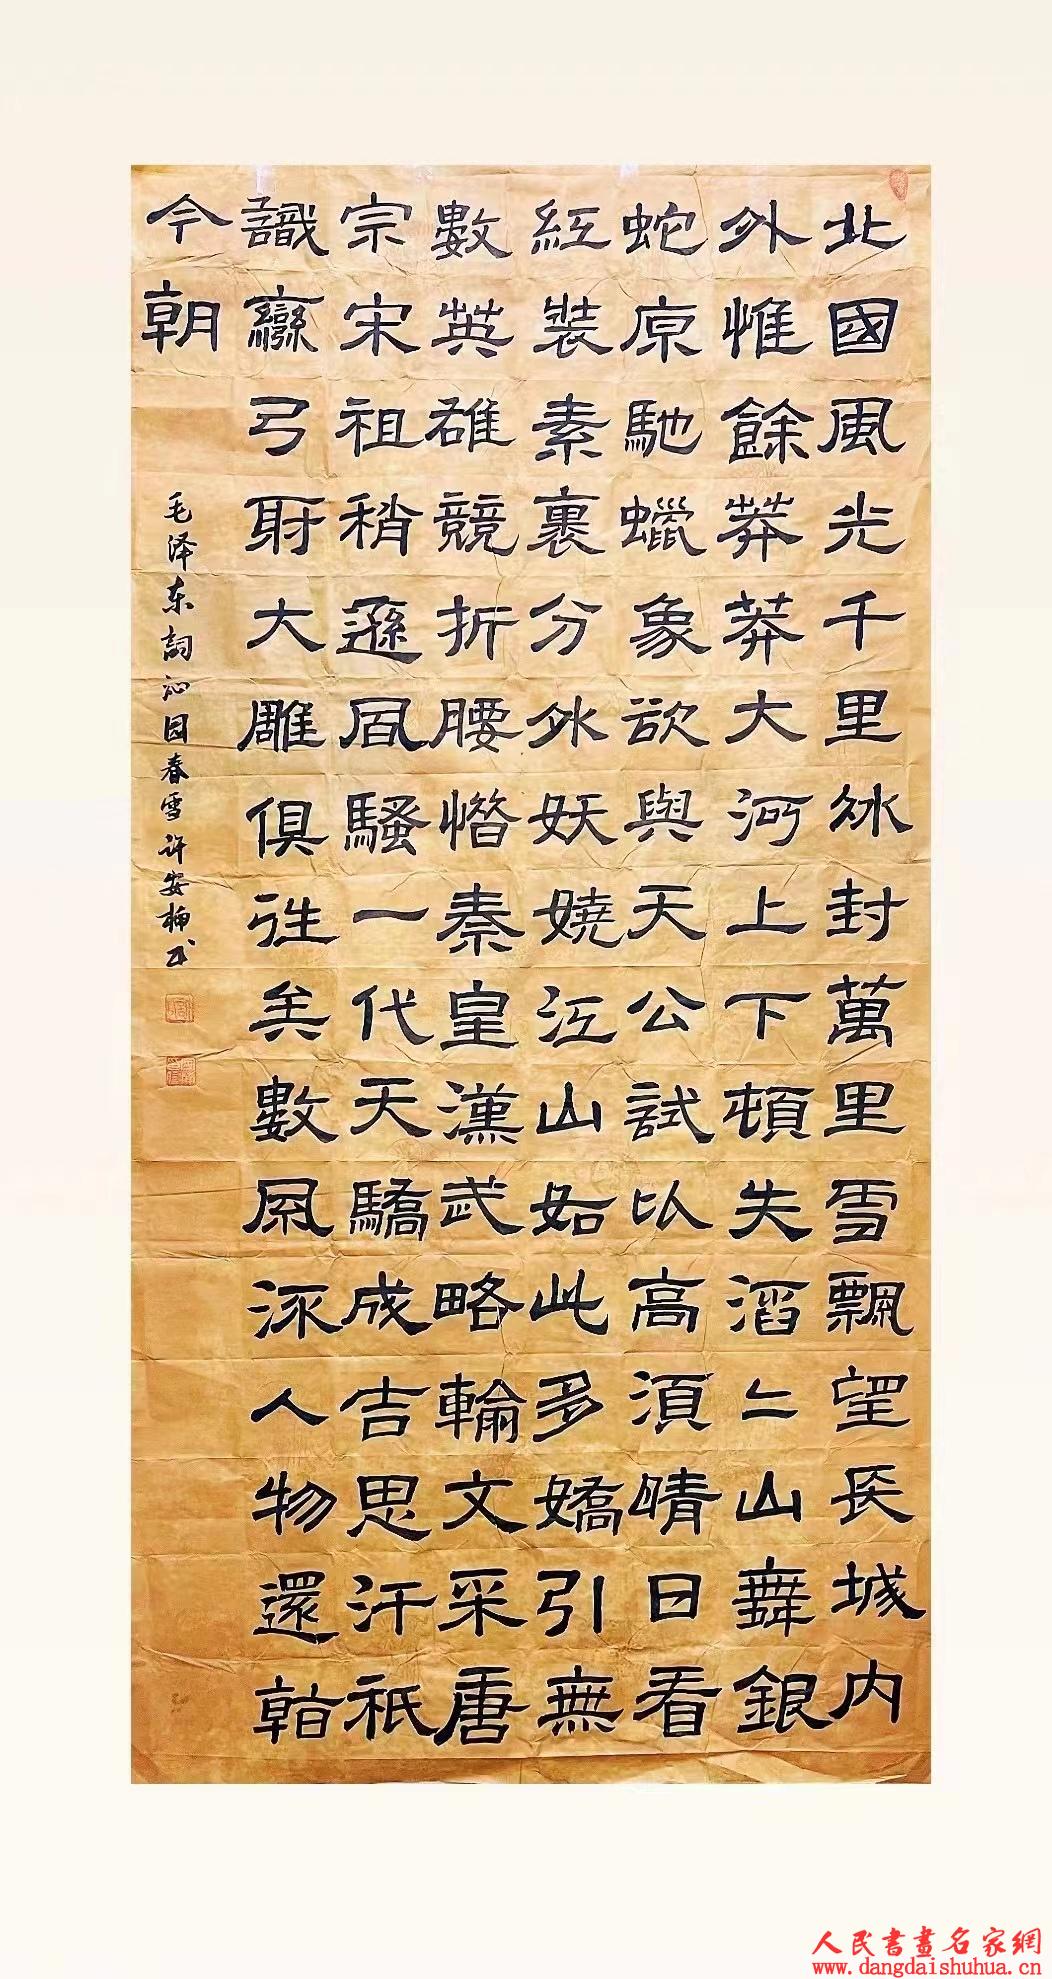 北國風光千里冰封萬里雪飄望長城内
外惟餘莽莽大河上下頓失滔二山舞銀
蛇原馳蠟象欲與天公試以高須晴日看
紅裝素裹分外妖嬈江山如此多嬌引無
數英雄競折腰惜秦皇漢武略輸文采唐
宗宋祖稍遜風騷一代天驕成吉思汗祇
識彎弓射大雕俱往矣數風流人物還看
今朝
毛泽东詞沁园春雪许安书
人民書畫名家網
www.dangdaishuhua.cn